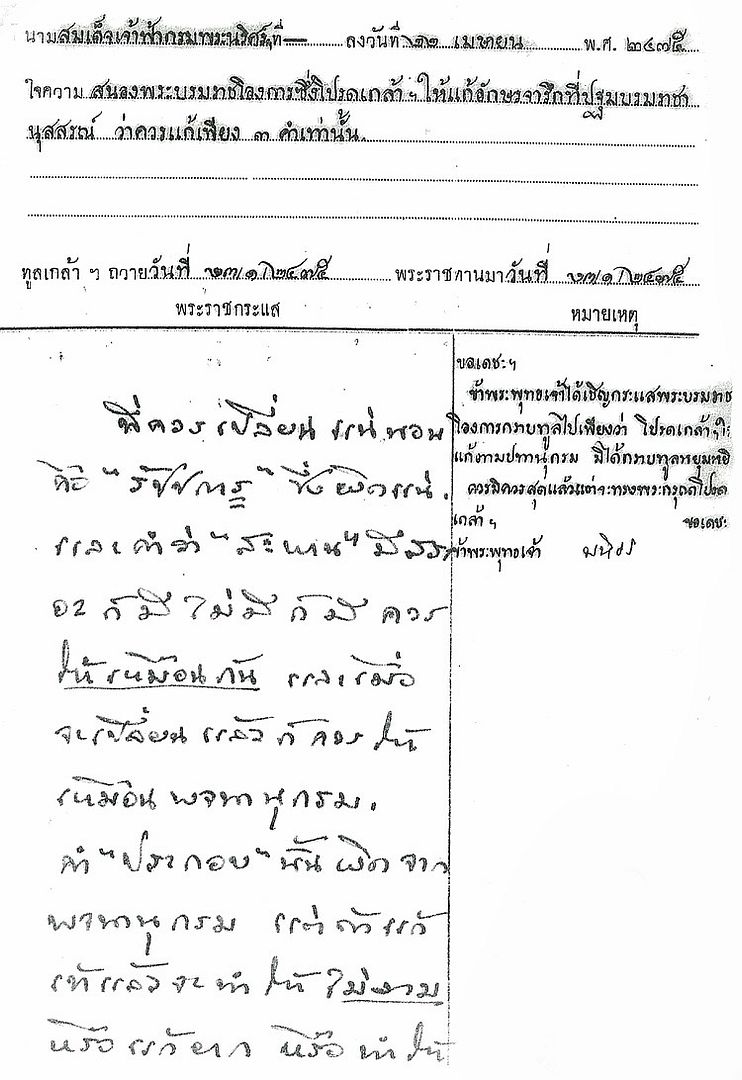 นามสมเด็จเจ้าฟ้ากรมพระนริศร์ที่— ลงวันที่ ๒๒ เมษายน พ.ศ. ๒๔๗๕
ใจความ สนองพระบรมราชโองการซึ่งโปรดเกล้า ฯ ให้แก้อักษรจารึกที่ปฐมบรมราชา
นุสสรณ์ ว่าควรแก้เพียง ๓ คำเท่านั้น
ทูลเกล้า ฯ ถวายวันที่ ๒๓/๑/๒๔๗๕ พระราชทานมาวันที่ ๒๓/๑/๒๔๗๕
พระราชกระแส
หมายเหตุ
ที่ควรเปลี่ยนแน่นอน
คือ "รัชชการ" ซึ่งผิดแน่.
และคำว่า "สะพาน" มีสระ
อะก็มี ไม่มีก็มี ควร
ให้เหมือนกัน และเมื่อ
จะเปลี่ยนแล้วก็ควรให้
เหมือนพจนานุกรม.
คำ "ประกอบ" นั้นผิดจาก
พจนานุกรม แต่ถ้าแก้
เข้าแล้วจะทำให้ไม่งาม
หรือแก้ยาก หรือทำให้
ขอเดชะฯ
ข้าพระพุทธเจ้าได้เชิญกระแสพระบรมราช
โองการกราบทูลไปเพียงว่า โปรดเกล้าฯให้
แก้ตามปทานุกรม มิได้กราบทูลหยุมหยิ
ควรมิควรสุดแล้วแต่จะทรงพระกรุณาโปรด
เกล้า ฯ ขอเดชะ
ข้าพระพุทธเจ้า